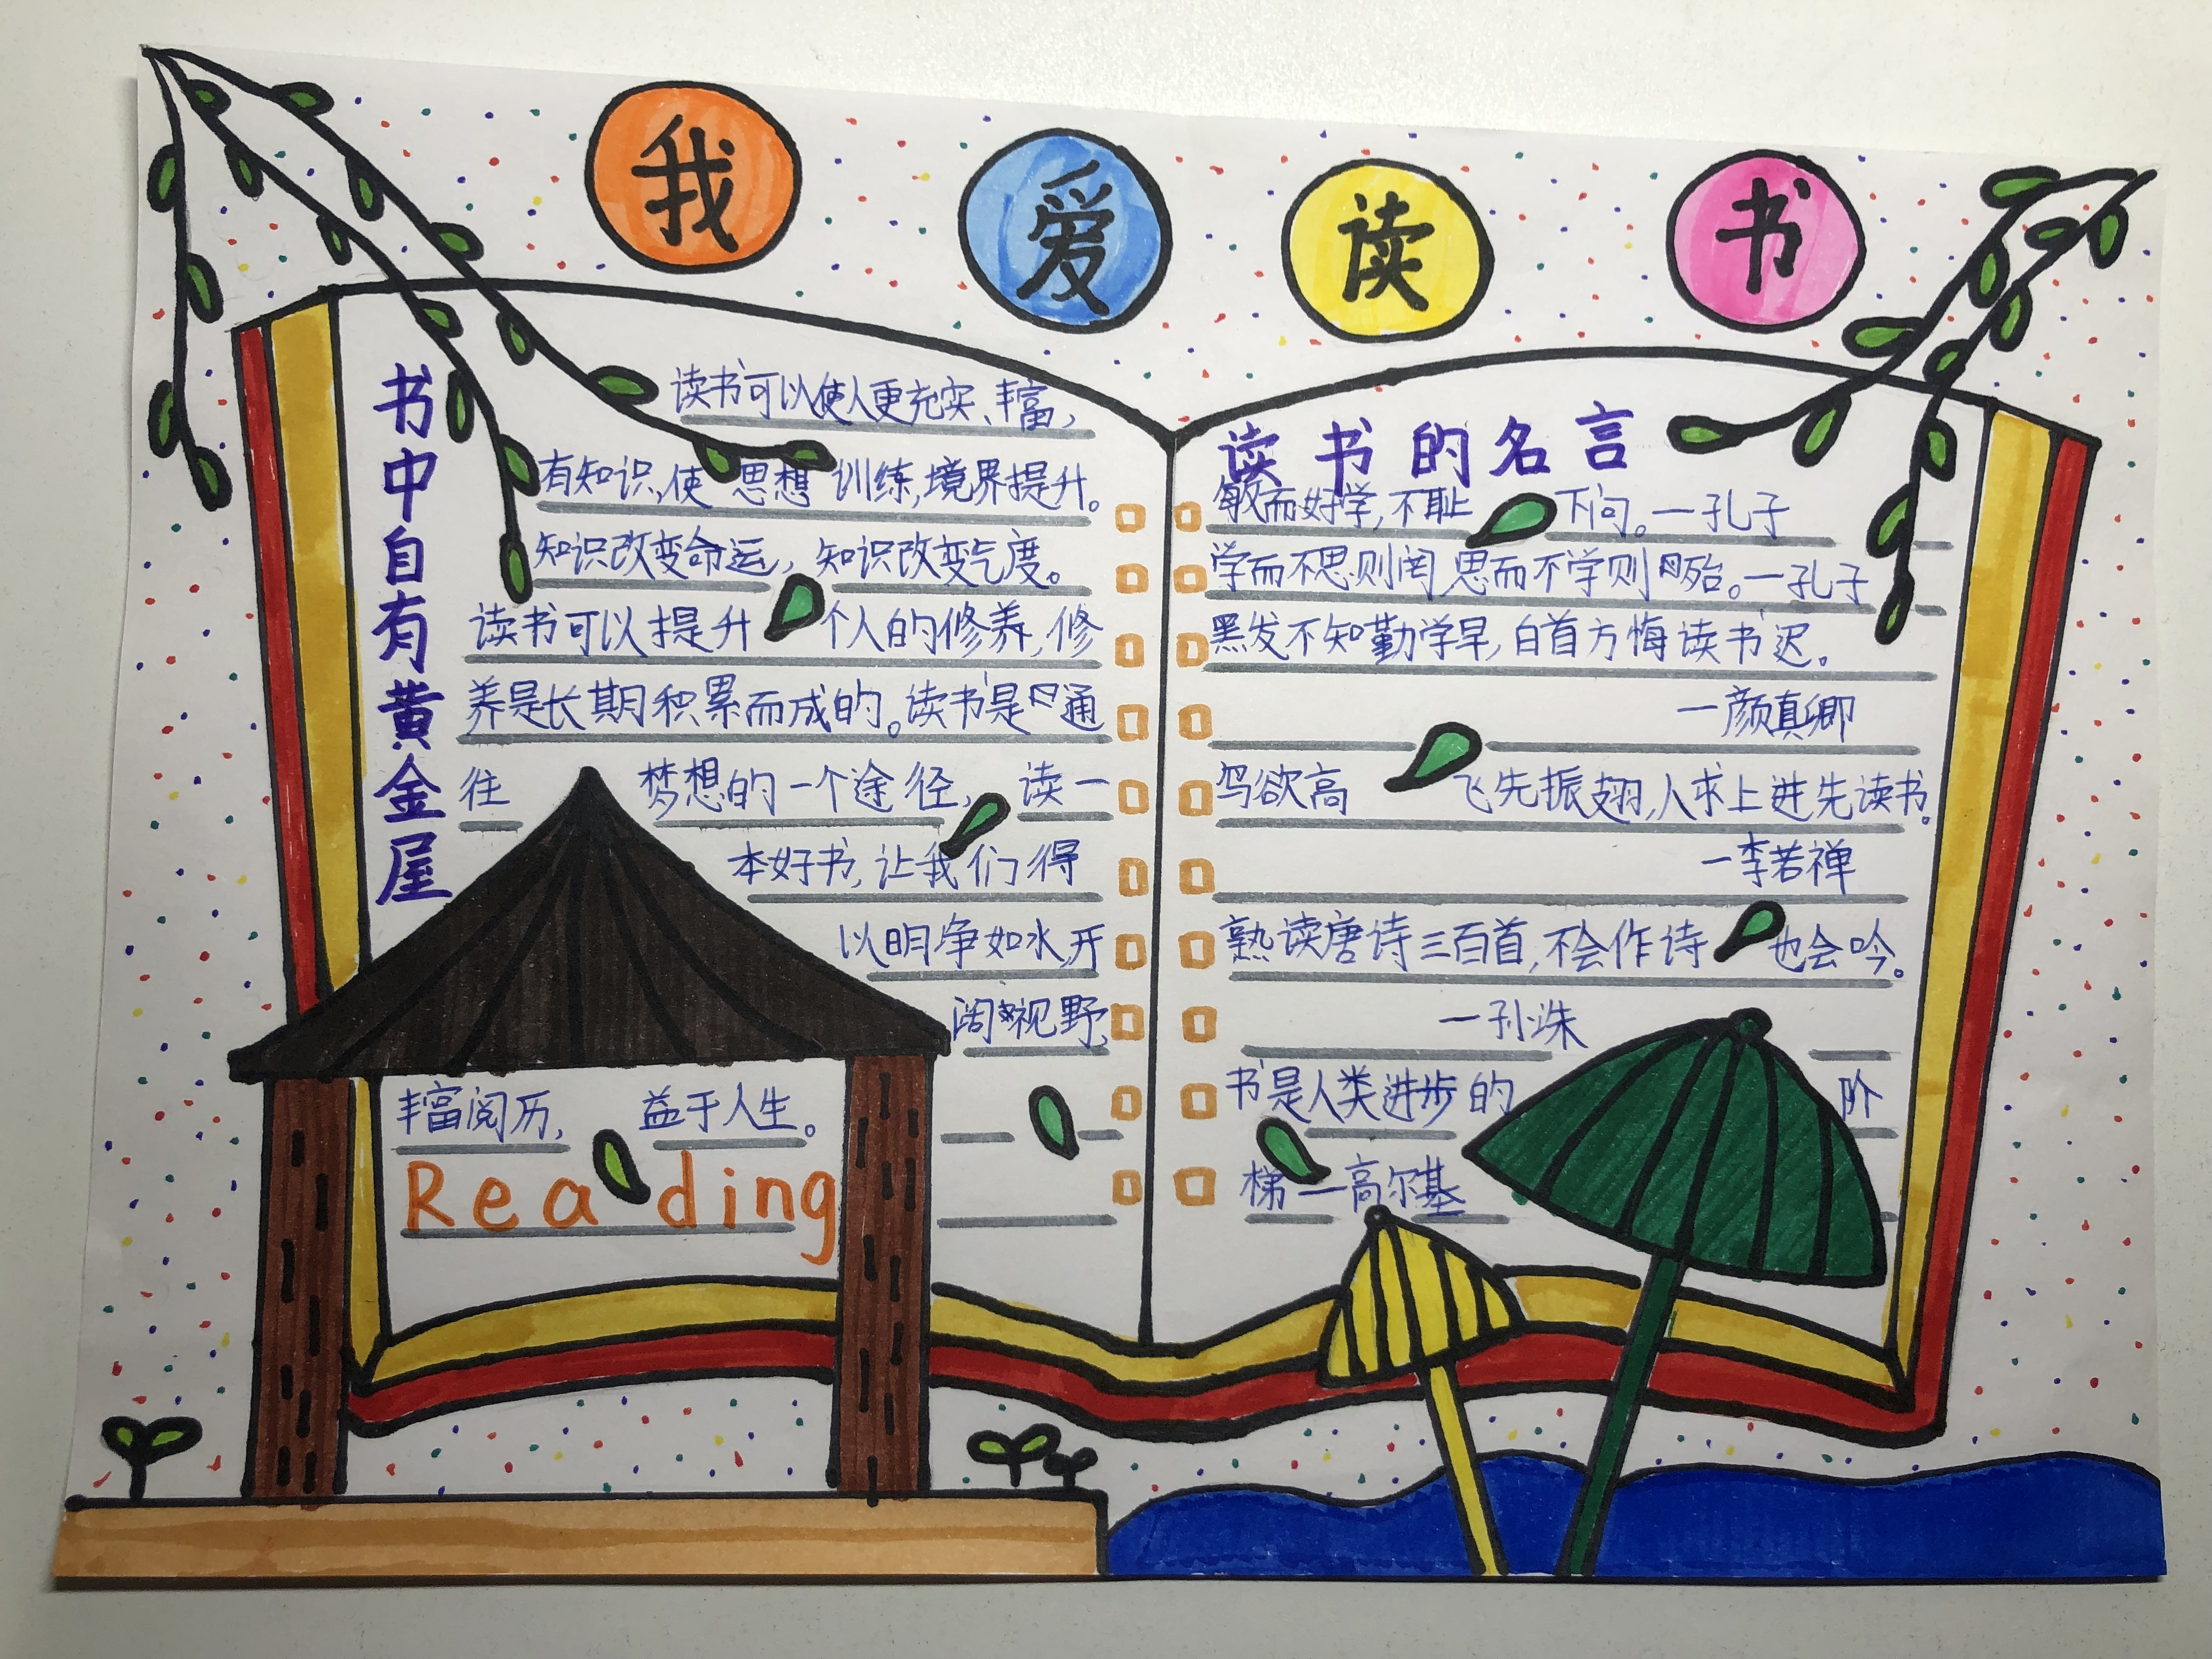 我爱读书
书中自有黄金屋
读书可以使人更充实、丰富,
有知识,使思想训练,境界提升。
知识改变命运,知识改变气度。
读书可以提升个人的修养,修
养是长期积累而成的。读书是通
往梦想的一个途径,读一
本好书,让我们得
以明净如水,开
阔视野,
丰富阅历,益于人生。
Reading
读书的名言
敏而好学,不耻下问。—孔子
学而不思则罔,思而不学则殆。—孔子
黑发不知勤学早,白首方悔读书迟。
—颜真卿
鸟欲高飞先振翅,人求上进先读书。
—李若禅
熟读唐诗三百首,不会作诗也会吟。
—孙洙
书是人类进步的阶
梯—高尔基